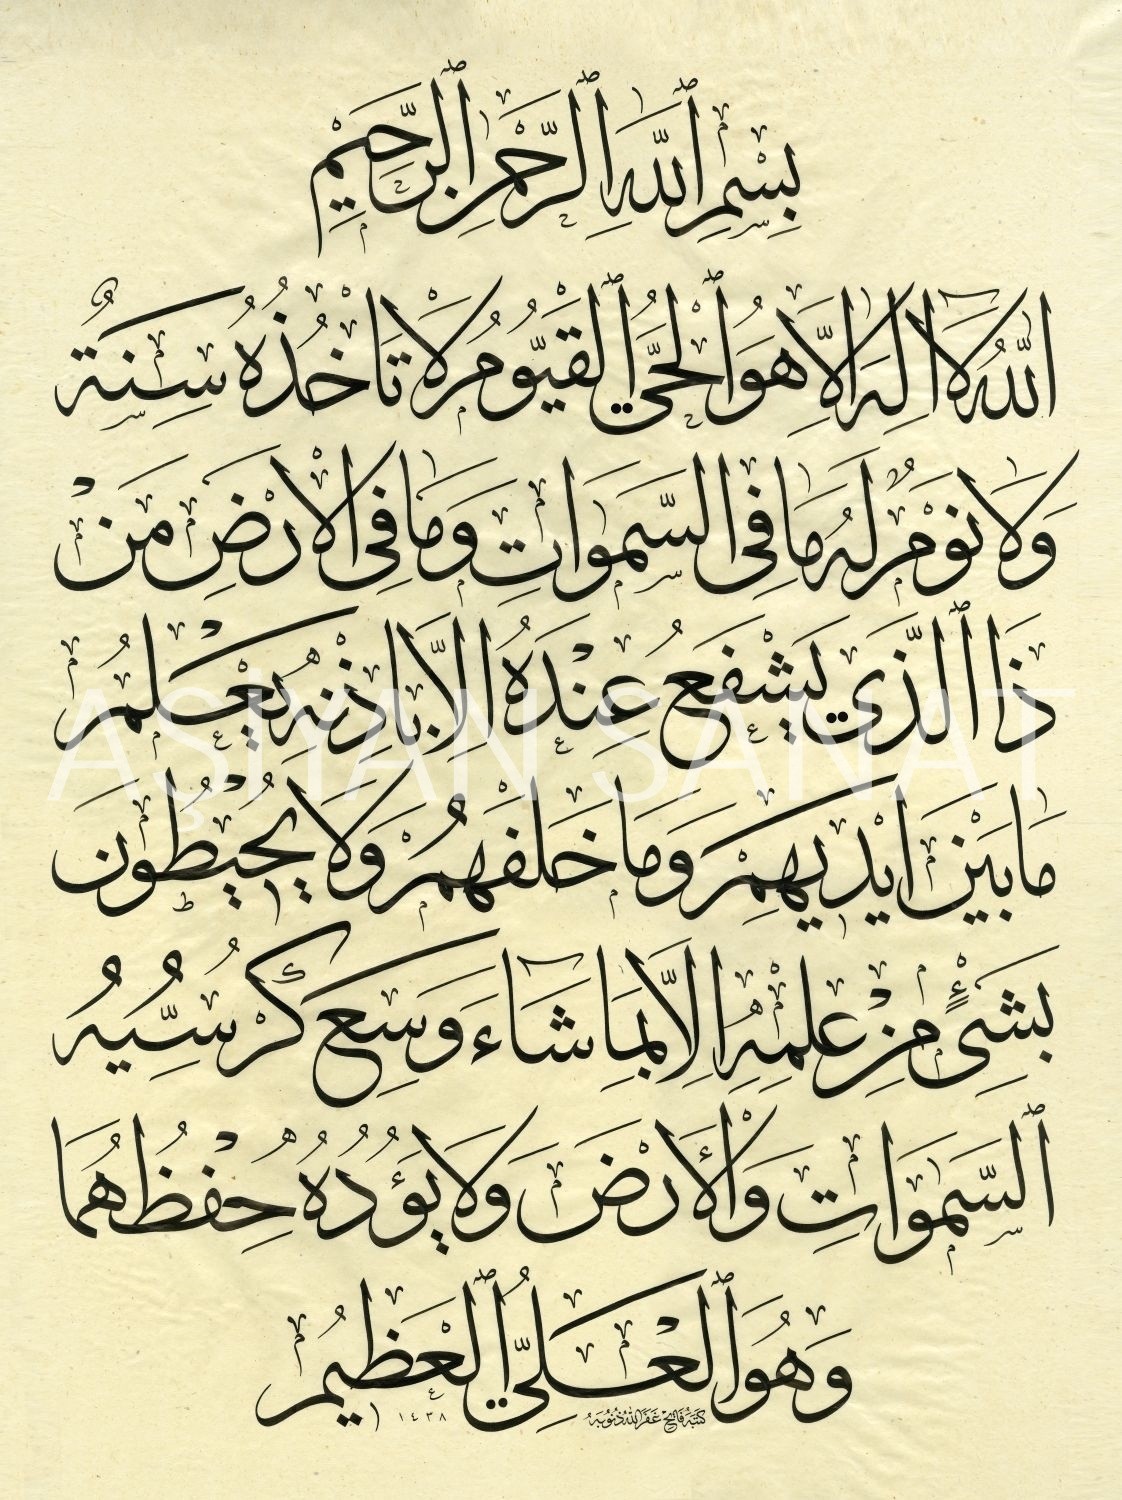 بِسْمِ ٱللَّهِ ٱلرَّحْمٰنِ ٱلرَّحِيمِ
اَللّٰهُ لَٓا اِلٰهَ اِلَّا هُوَ ٱلْحَىُّ ٱلْقَيُّومُ لَا تَاْخُذُهُ سِنَةٌ
وَلَا نَوْمٌ لَهُ مَا فِى السَّمٰوَاتِ وَمَا فِى الْاَرْضِ مَنْ
ذَا ٱلَّذِى يَشْفَعُ عِنْدَهُ اِلَّا بِاِذْنِهِ يَعْلَمُ
مَا بَيْنَ اَيْدِيهِمْ وَمَا خَلْفَهُمْ وَلَا يُحِيطُونَ
بِشَىْءٍ مِنْ عِلْمِهِ اِلَّا بِمَا شَٓاءَ وَسِعَ كُرْسِيُّهُ
ٱلسَّمٰوَاتِ وَالْأَرْضَ وَلَا يَؤُدُهُ حِفْظُهُمَا
وَهُوَ ٱلْعَلِىُّ ٱلْعَظِيمُ
كتبه فاتح غفر الله ذنوبه ١٤٣٨
AŞİYAN SANAT